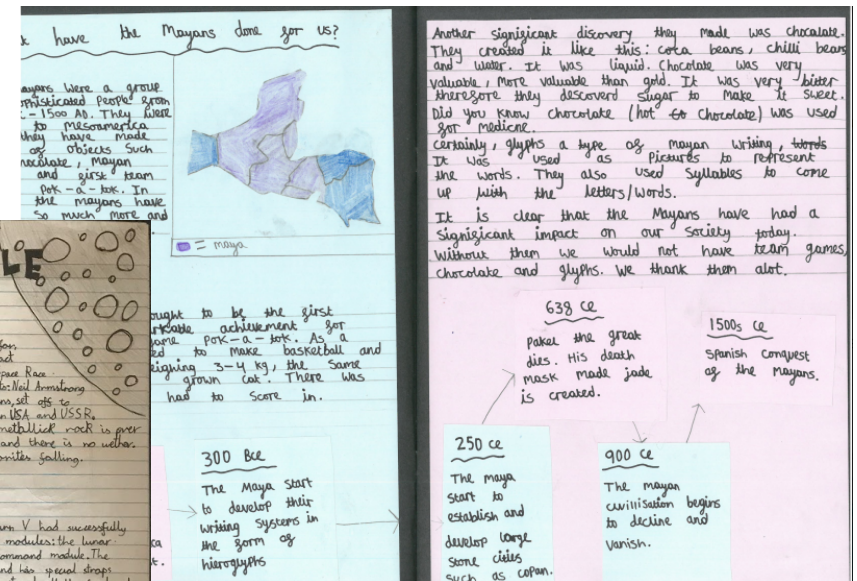 have the Mayans done for us?
ayans were a group
phisticated people from
- 1500 AD. They were
to Mesoamerica
they have made
of objects such
hocolate, mayan
and first team
pok-a-tok. In
the mayans have
so much more and
= maya
ought to be the first
rkable achievement for
ame pok-a-tok. As a
ed to make basketball and
eighing 3-4 kg, the same
grown cat. There was
had to score in.
300 Bce
The Maya start
to develop their
writing systems in
the form of
hieroglyphs
LE
pace Race.
ts: Neil Armstrong
ns, set off to
n USA and USSR.
metallick rock is over
and there is no wether.
orites falling.
urn V had successfully
modules: the lunar
ommand module. The
nd has special straps
Another significant discovery they made was chocolate.
They created it like this: coca beans, chilli beans
and water. It was liquid. Chocolate was very
valuable, more valuable than gold. It was very bitter
therefore they descoverd sugar to make it sweet.
Did you know chocolate (hot chocolate) was used
for medicne.
certainly, glyphs a type of mayan writing, words
It was used as pictures to represent
the words. They also used syllables to come
up with the letters/words.
It is clear that the Mayans have had a
significant impact on our society today.
Without them we would not have team games,
chocolate and glyphs. We thank them alot.
638 CE
Pakel the great
dies. His death
mask made jade
is created.
1500s CE
Spanish conquest
of the mayans.
250 CE
The maya
start to
establish and
develop large
stone cities
such as copan.
900 CE
The mayan
civilisation begins
to decline and
vanish.